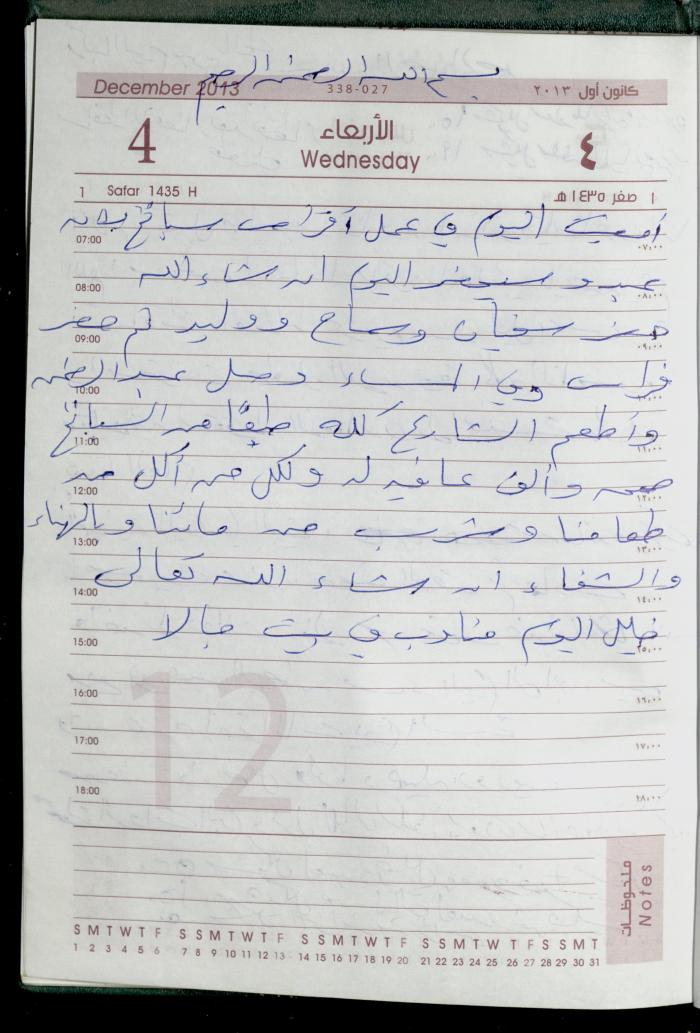 بسم الله الرحمن الرحيم
December 2013 338-027 كانون أول ٢٠١٣
4 الأربعاء ٤
Wednesday
1 Safar 1435 H ١ صفر ١٤٣٥ هـ
أمضيت اليوم في عمل أقراص سبانخ لانه
07:00 ٠٧:٠٠
عبد و سيحضر اليوم ان شاء الله
08:00 ٠٨:٠٠
حضر سفيان وسماح ووليد ثم حضر
09:00 ٠٩:٠٠
فراس وفي المساء وصل عبد الرحمن
10:00 ١٠:٠٠
وأطعم الشارع كله طبقًا من السبانخ
11:00 ١١:٠٠
صحه وألف عافيه له ولكل من أكل من
12:00 ١٢:٠٠
طعامنا وشرب من مائنا وبالهناء
13:00 ١٣:٠٠
والشفاء ان شاء الله تعالى
14:00 ١٤:٠٠
خليل اليوم مناوب في بيت جالا
15:00 ١٥:٠٠
12
16:00 ١٦:٠٠
17:00 ١٧:٠٠
18:00 ١٨:٠٠
ملحوظات
Notes
S M T W T F S S M T W T F S S M T W T F S S M T W T F S S M T
1 2 3 4 5 6 7 8 9 10 11 12 13 14 15 16 17 18 19 20 21 22 23 24 25 26 27 28 29 30 31